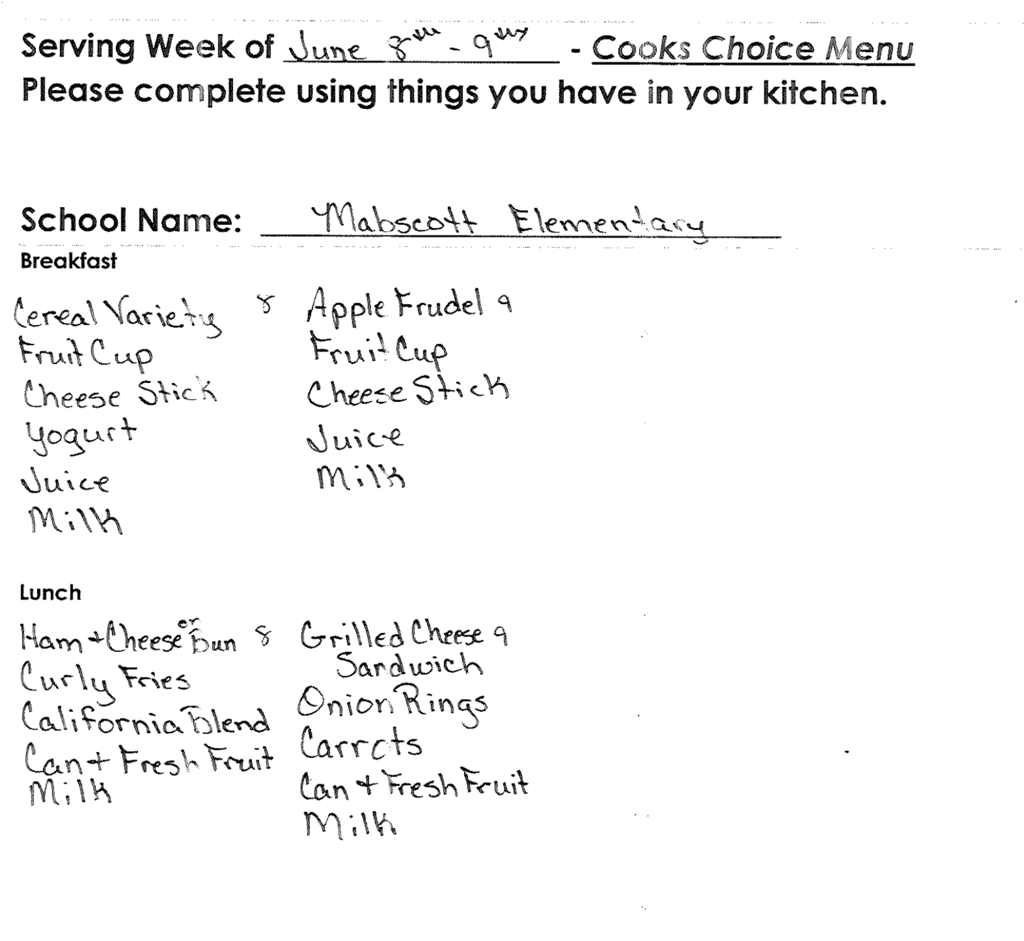 Serving Week of June 8th - 9th - Cooks Choice Menu
Please complete using things you have in your kitchen.
School Name: Mabscott Elementary
Breakfast
Cereal Variety 8
Fruit Cup
Cheese Stick
Yogurt
Juice
Milk
Apple Frudel 9
Fruit Cup
Cheese Stick
Juice
Milk
Lunch
Ham + Cheese on Bun 8
Curly Fries
California Blend
Can + Fresh Fruit
Milk
Grilled Cheese 9
Sandwich
Onion Rings
Carrots
Can + Fresh Fruit
Milk